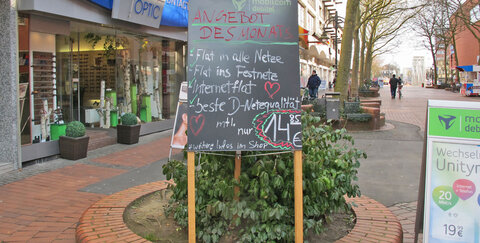 mobilcom
debitel
ANGEBOT
DES MONATS
-Flat in alle Netze
-Flat ins Festnetz
-Internetflat
-beste D-Netzqualität
mtl.
nur
14,85
weitere Infos im Shop
OPTIC
mobilcom
debitel
Wechseln
Unitym
20
19€